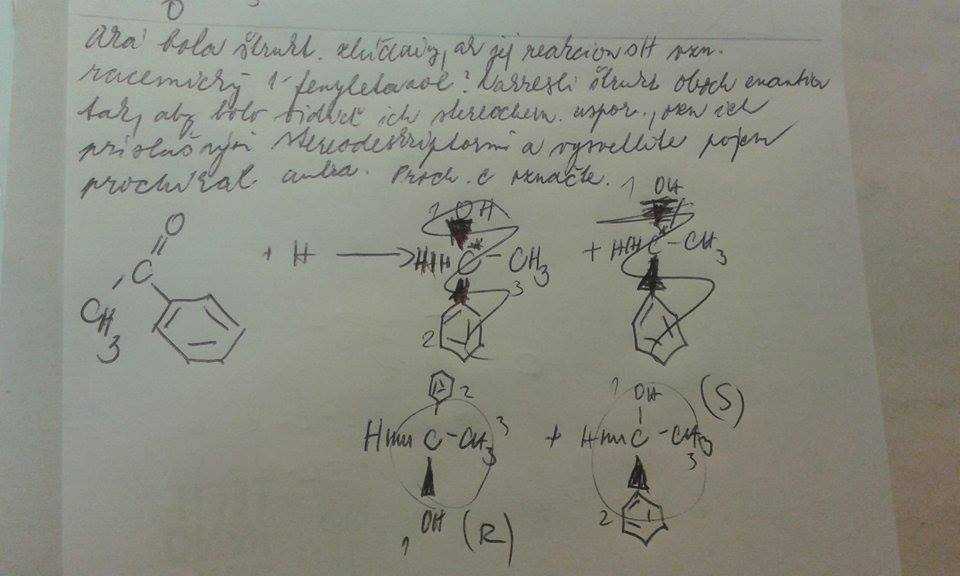 O
Aká bola štrukt. zlúčeniny, ak jej reakciou H vzn.
racemický 1-fenyletanol? Nakresli štrukt oboch enantio
tak, aby bolo vidieť ich stereochem. uspor., ozn ich
príslušnými stereodeskriptormi a vysvetlite pojem
prochirál centra. Proch. C označte.
O
C
CH3
+ H
1 OH
HIH C* - CH3
3
2
1 OH
+ HIH C* - CH3
2
H C - CH3 3
OH
1 (R)
1 OH (S)
+ H C - CH3
3
2